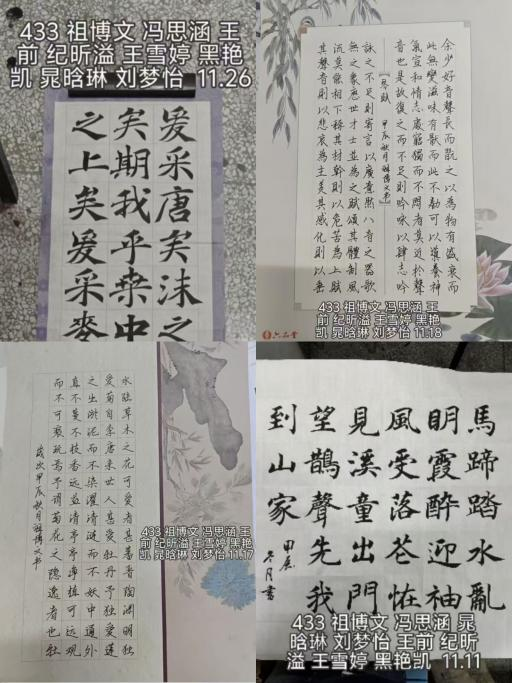 433 祖博文 冯思涵 王
前 纪昕溢 王雪婷 黑艳
凯 晁晗琳 刘梦怡 11.26
爰采唐矣沫之
矣期我乎桒中
之上矣爰采麥
余少好音聲長而翫之以為物有盛衰而
此無變滋味有猒而此不勌可以導養神
氣宣和情志處窮獨而不悶者莫近於聲
音也是故復之而不足則吟咏以肆志吟
【琴赋】 甲辰秋月祖博文书
詠之不足則寄言以廣意然八音之器歌
之象歷世才士並為之賦頌其體制風
流莫相稱其材幹則以危苦為上賦
其聲音則以悲哀為主美其感化則以垂
六品堂
433 祖博文 冯思涵 王
前 纪昕溢 王雪婷 黑艳
凯 晁晗琳 刘梦怡 11.18
水陆草木之花可爱者甚蕃晋陶渊明独
爱菊自李唐来世人甚爱牡丹予独爱莲
之出淤泥而不染濯清涟而不妖中通外
直不蔓不枝香远益清亭亭净植可远观
而不可亵玩焉予谓菊花之隐逸者也牡
歲次甲辰秋月祖博文书
433 祖博文 冯思涵 王
前 纪昕溢 王雪婷 黑艳
凯 晁晗琳 刘梦怡 11.17
馬蹄踏水亂
明霞醉迎袖
風受落花恠
見溪童出門
望鵲聲先我
到山家
甲辰
冬月書
433 祖博文 冯思涵 晁
晗琳 刘梦怡 王前 纪昕
溢 王雪婷 黑艳凯 11.11